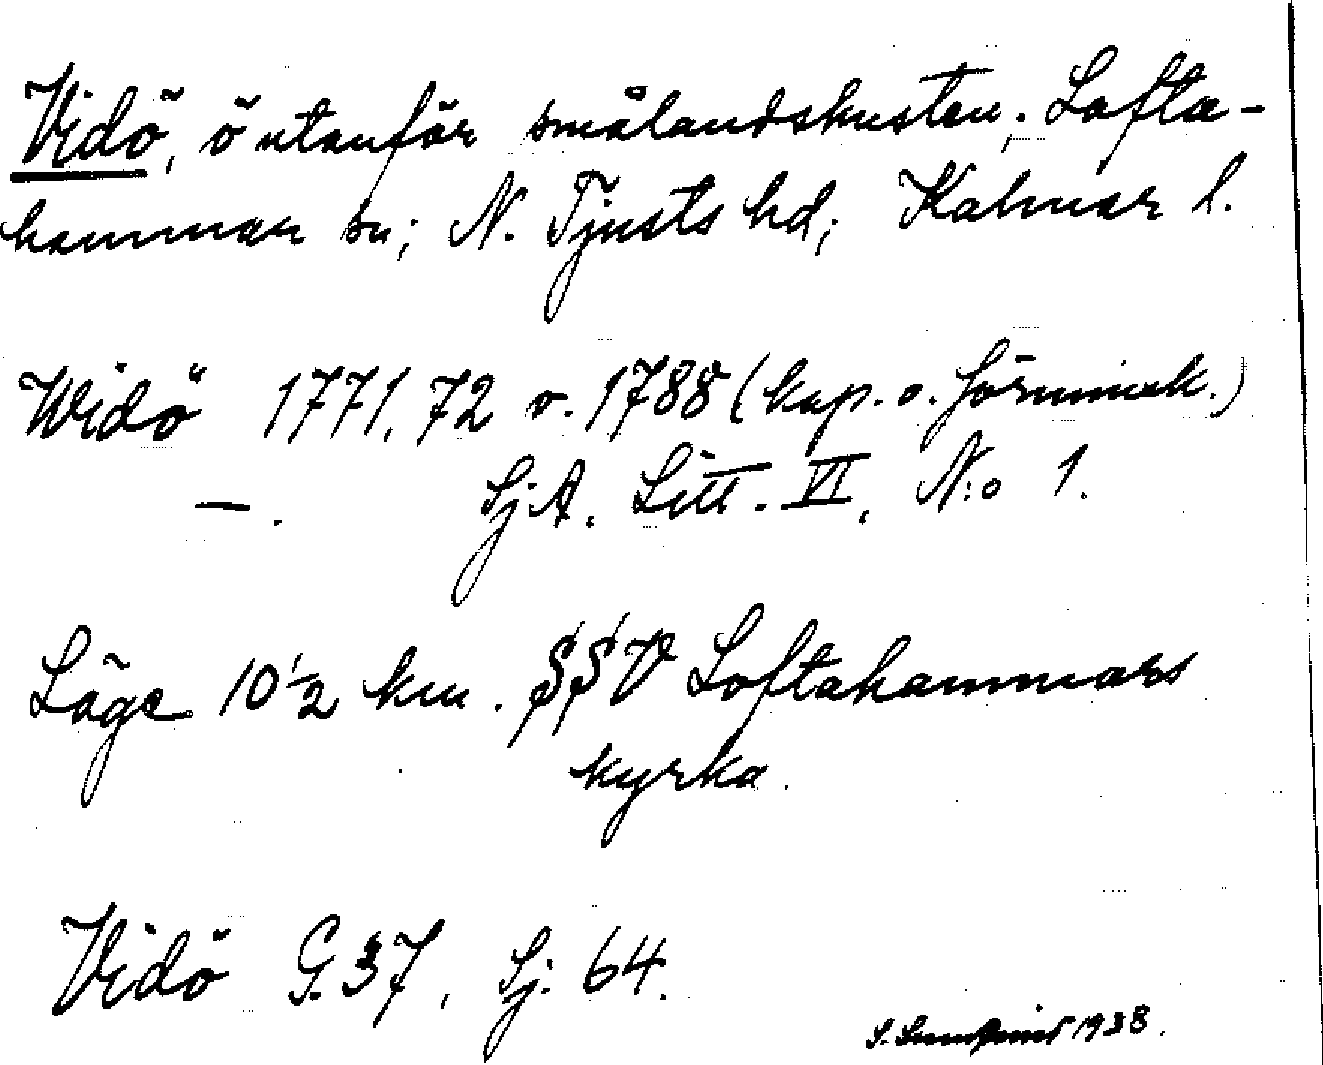 Vidö, ö utanför smålandskusten; Lofta-
hammar sn; N. Tjusts hd; Kalmar l.
Widö 1771, 72 o. 1788 (kap. o. förminsk.)
—. SjA. Litt. VI, N:o 1.
Läge 10 1/2 km. SSV Loftahammars
kyrka.
Vidö G. 37, Sj. 64.
S. 1938.